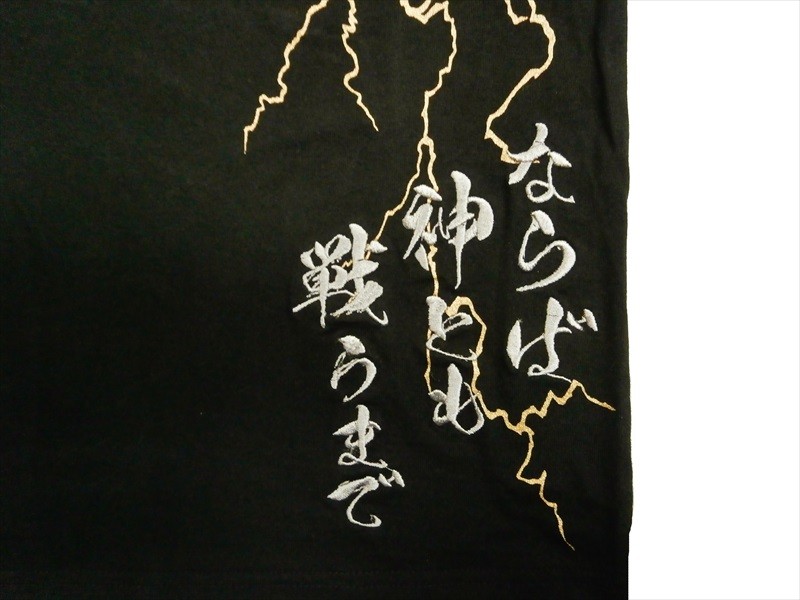 ならば
神とも
戦うまで